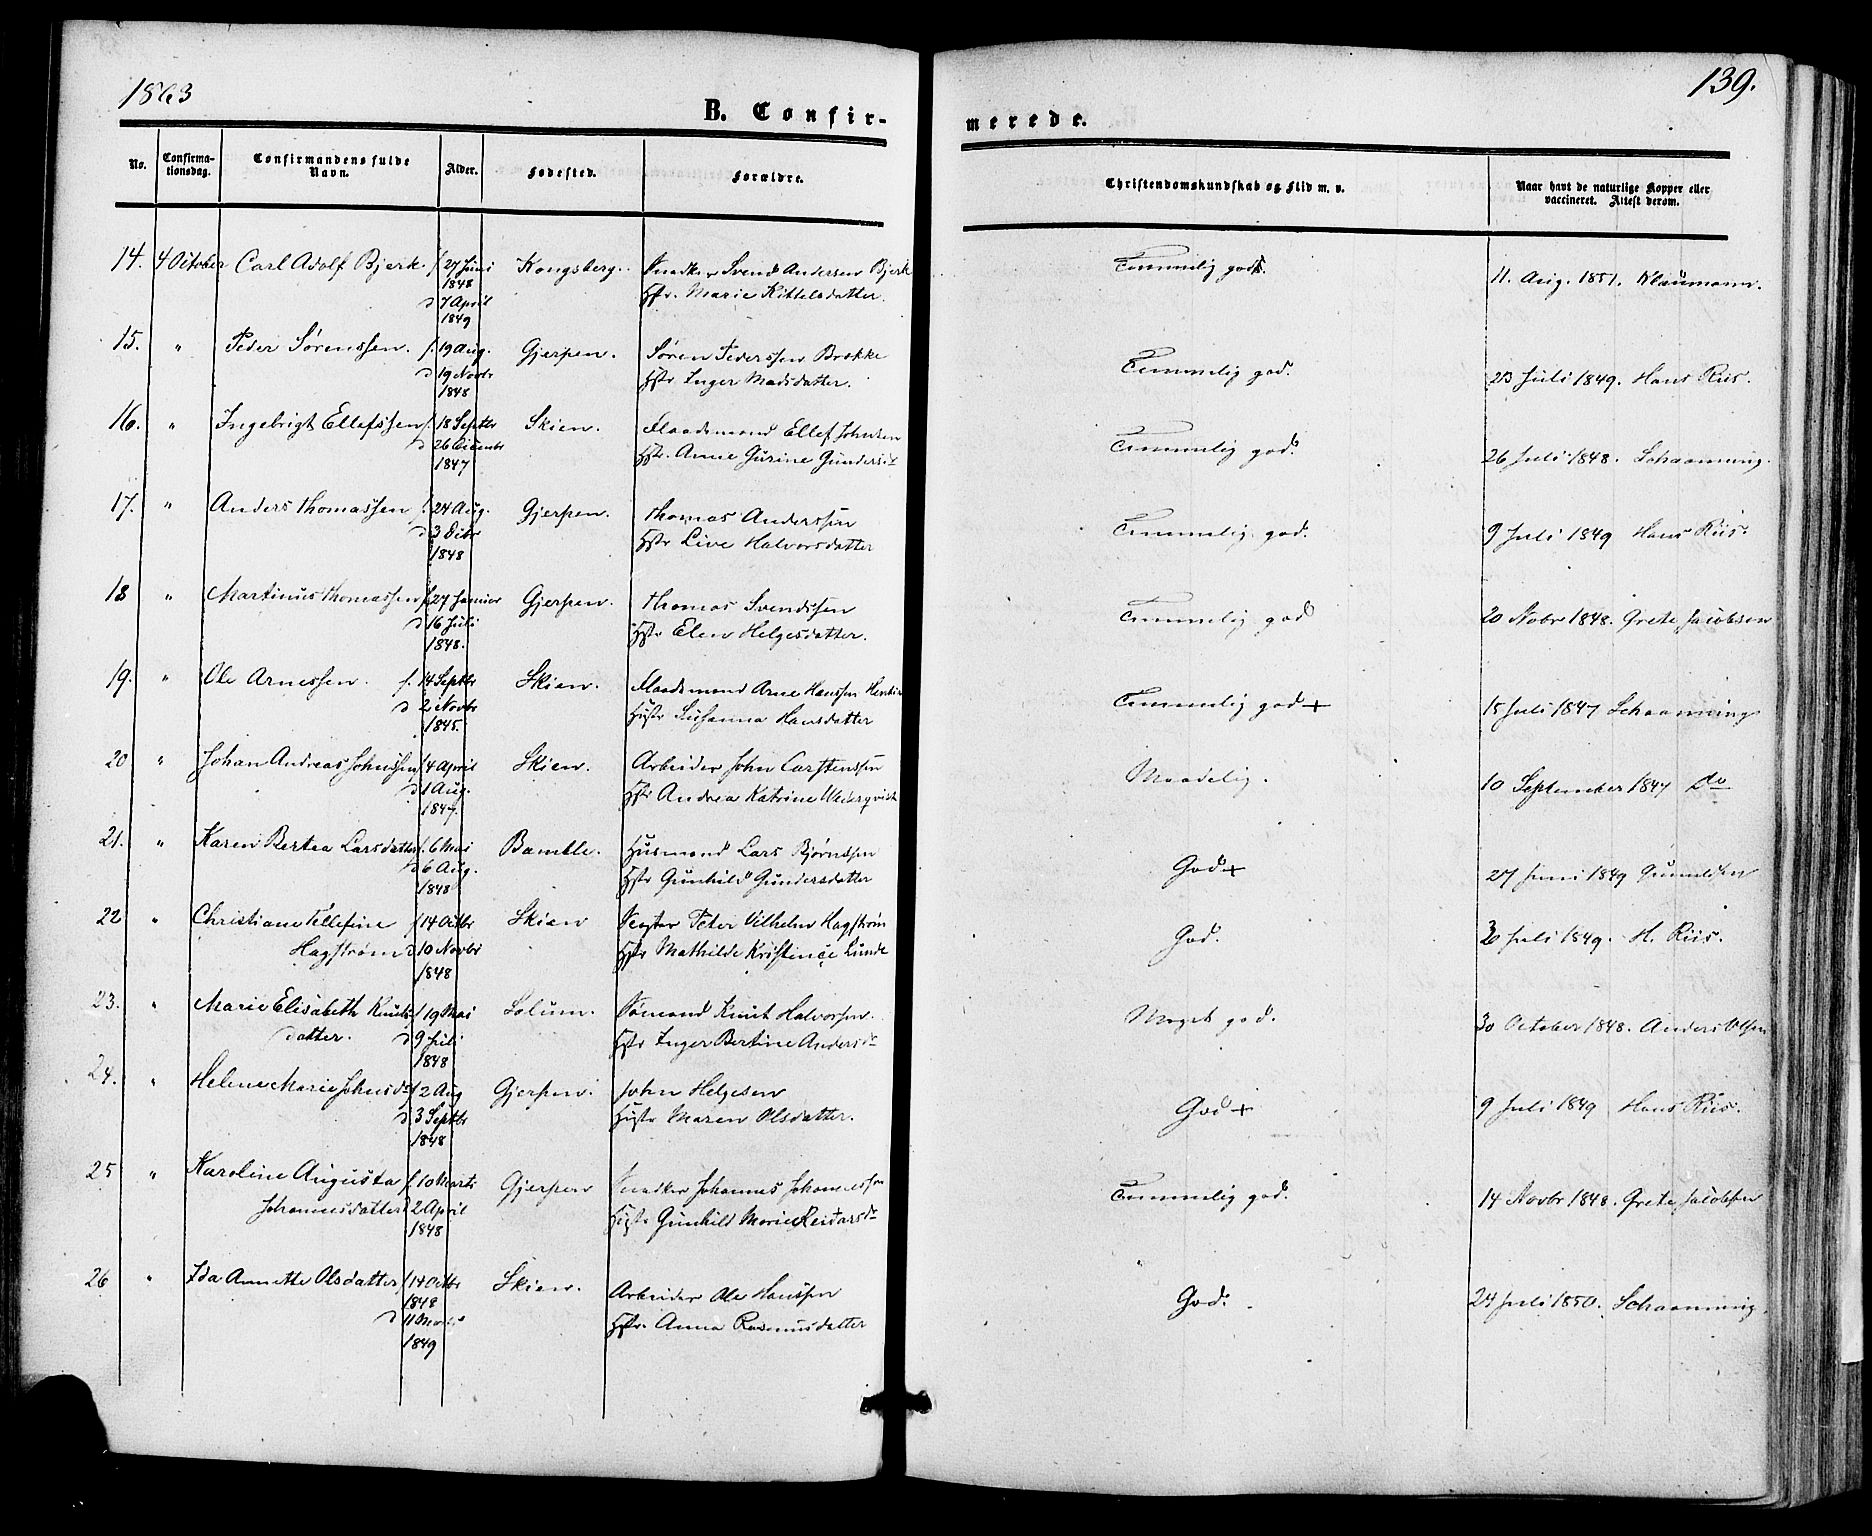 1863
139.
B. Confir-
merede.
No.
Confirma-
tionsdag.
Confirmandens fulde
Navn.
Alder.
Fødested.
Forældre.
Christendomskundskab og Flid m. v.
Naar havt de naturlige Kopper eller
vaccineret. Attest derom.
14. 4 October Carl Adolf Bjerk f. 27 Juni Kongsberg. Snedker Svend Andersen Bjerk Temmelig god. 11. Aug. 1851. Klaumann.
1848 Hstr. Marie Kittelsdatter.
d 7 April
1849
15. " Peder Sørenssen. f. 19 Aug. Gjerpen. Søren Pederssen Brække Temmelig god. 23 Juli 1849. Hans Riis.
d 19 Novbr Hstr Inger Madsdatter.
1848
16. " Ingebrigt Ellefssen f. 18 Septbr Skien. Flaadsmand Ellef Johnsen Temmelig god. 26 Juli 1848. Schaanning.
d 26 Hstr. Anne Gurine Gundersdr
1847
17. " Anders Thomassen f. 24 Aug. Gjerpen. Thomas Anderssen Temmelig god. 9 Juli 1849 Hans Riis.
d 3 Hstr Live Halvorsdatter
1848
18 " Martinus Thomassen f 27 Januar Gjerpen. Thomas Svendssen Temmelig god 20 Novbr 1848. Grete Jacobsen
d 16 Juli Hstr Elen Helgesdatter.
1848.
19. " Ole Arnessen. f. 14 Septbr Skien. Flaadsmand Arne Hanssen Temmelig god + 15 Juli 1847 Schaanning
d 2 Novbr Hustr Susanna Hansdatter
1845.
20 " Johan Andreas Johnssen f 4 April Skien. Arbeider John Carstenssen Maadelig. 10 September 1847 do
d 1 Aug. Hstr Andrea Katrine
1847.
21. " Karen Bertea Larsdatter f. 6 Mai Bamble. Husmand Lars Bjørnssen God + 27 Juni 1849
d 6 Aug. Hstr Gunhild Gundersdatter
1848
22 " Christiane Tellefine f 14 Octbr Skien Peter Vilhelm Hagstrøm God. Juli 1849. H. Riis.
Hagstrøm d 10 Novbr Hstr Mathilde Kristence Lunde
1848
23. " Marie Elisabeth Knuds- f 19 Mai Solum. Sømand Knut Halvorsen. Meget god. 30 October 1848. Anders Olsen
datter. d 9 Juli Hstr Inger Bertine Andersdr
1848
24. " Helene Marie Johnsdr f 2 Aug Gjerpen. John Helgesen God + 9 Juli 1849 Hans Riis.
d 3 Septbr Hustr Maren Olsdatter.
1848
25 " Karoline Augusta f. 10 Marts Gjerpen Snedker Johannes Johannessen Temmelig god. 14 Novbr 1848. Grete Jacobsen
Johannesdatter d 2 April Hustr Gunhild Marie Reidarsdr
1848
26 " Ida Annette Olsdatter f 14 Octbr Skien. Arbeider Ole Hanssen God. 24 Juli 1850. Schaanning.
1848 Hstr. Anna Rasmusdatter
d 11 Marts
1849